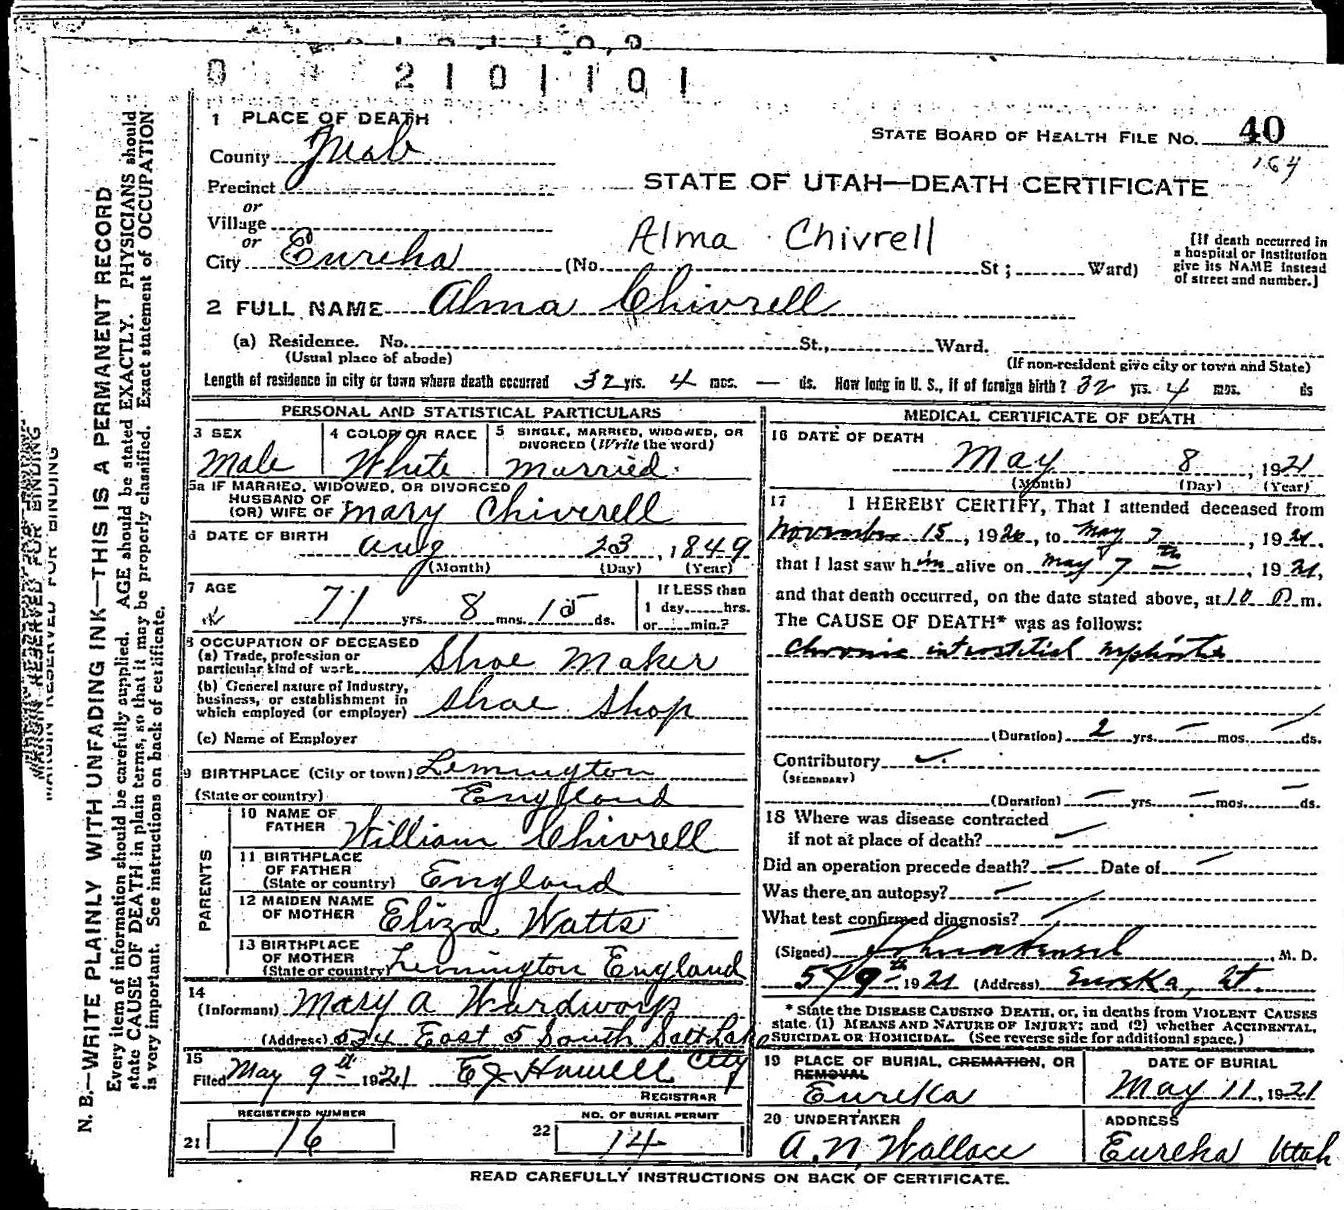 2101101
1 PLACE OF DEATH
STATE BOARD OF HEALTH FILE No. 40
County Juab
164
Precinct
STATE OF UTAH—DEATH CERTIFICATE
or
Village
or
Alma Chivrell
City Eureka (No. St; Ward)
[If death occurred in
a hospital or institution
give its NAME instead
of street and number.]
2 FULL NAME Alma Chivrell
(a) Residence. No. St., Ward.
(Usual place of abode)
(If non-resident give city or town and State)
Length of residence in city or town where death occurred 32 yrs. 4 mos. — ds. How long in U. S., if of foreign birth? 32 yrs. 4 mos. ds
PERSONAL AND STATISTICAL PARTICULARS
3 SEX
Male
4 COLOR OR RACE
White
5 SINGLE, MARRIED, WIDOWED, OR
DIVORCED (Write the word)
Married
5a IF MARRIED, WIDOWED, OR DIVORCED
HUSBAND OF
(OR) WIFE OF Mary Chiverell
6 DATE OF BIRTH Aug 23, 1849
(Month) (Day) (Year)
7 AGE
71 yrs. 8 mos. 15 ds.
If LESS than
1 day, hrs.
or min.?
8 OCCUPATION OF DECEASED
(a) Trade, profession or
particular kind of work Shoe Maker
(b) General nature of Industry,
business, or establishment in
which employed (or employer) Shoe Shop
(c) Name of Employer
9 BIRTHPLACE (City or town) Lemington
(State or country) England
PARENTS
10 NAME OF
FATHER William Chivrell
11 BIRTHPLACE
OF FATHER
(State or country) England
12 MAIDEN NAME
OF MOTHER Eliza Watts
13 BIRTHPLACE
OF MOTHER
(State or country) Lemington England
14
(Informant) Mary A
(Address) 534 East 5 South Salt Lake
City
15
Filed May 9th 1921 Howell
REGISTRAR
REGISTERED NUMBER
21 16
NO. OF BURIAL PERMIT
22 14
MEDICAL CERTIFICATE OF DEATH
16 DATE OF DEATH
May 8, 1921
(Month) (Day) (Year)
17 I HEREBY CERTIFY, That I attended deceased from
November 15, 1920, to May 7, 1921,
that I last saw him alive on May 7th, 1921,
and that death occurred, on the date stated above, at 10 m.
The CAUSE OF DEATH* was as follows:
Chronic interstitial nephritis
(Duration) 2 yrs. — mos. — ds.
Contributory
(SECONDARY)
(Duration) — yrs. — mos. — ds.
18 Where was disease contracted
if not at place of death?
Did an operation precede death? — Date of —
Was there an autopsy? —
What test confirmed diagnosis?
(Signed) M. D.
5/9th 1921 (Address) Eureka, Ut.
* State the DISEASE CAUSING DEATH, or, in deaths from VIOLENT CAUSES
state (1) MEANS AND NATURE OF INJURY; and (2) whether ACCIDENTAL,
SUICIDAL OR HOMICIDAL. (See reverse side for additional space.)
19 PLACE OF BURIAL, CREMATION, OR
REMOVAL
Eureka
DATE OF BURIAL
May 11, 1921
20 UNDERTAKER
A. N. Wallace
ADDRESS
Eureka Utah
READ CAREFULLY INSTRUCTIONS ON BACK OF CERTIFICATE.
MARGIN RESERVED FOR BINDING
MARGIN RESERVED FOR BINDING
N. B.—WRITE PLAINLY WITH UNFADING INK—THIS IS A PERMANENT RECORD
Every item of information should be carefully supplied. AGE should be stated EXACTLY. PHYSICIANS should
state CAUSE OF DEATH in plain terms, so that it may be properly classified. Exact statement of OCCUPATION
is very important. See instructions on back of certificate.